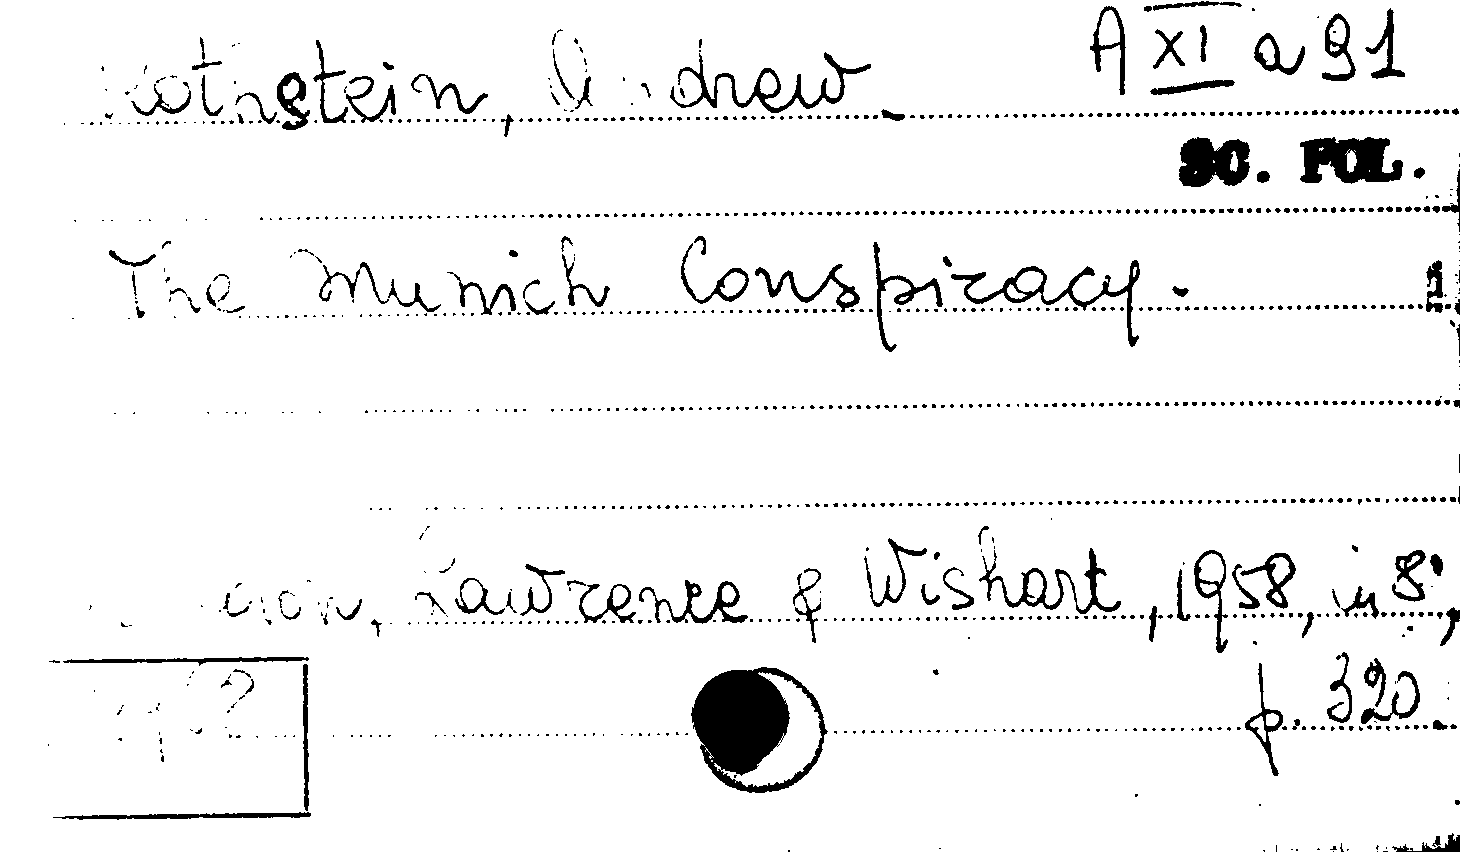 Rothstein, Andrew.
A XI a 91
SC. POL.
The Munich Conspiracy.
London, Lawrence & Wishart, 1958, in 8°,
p. 320.